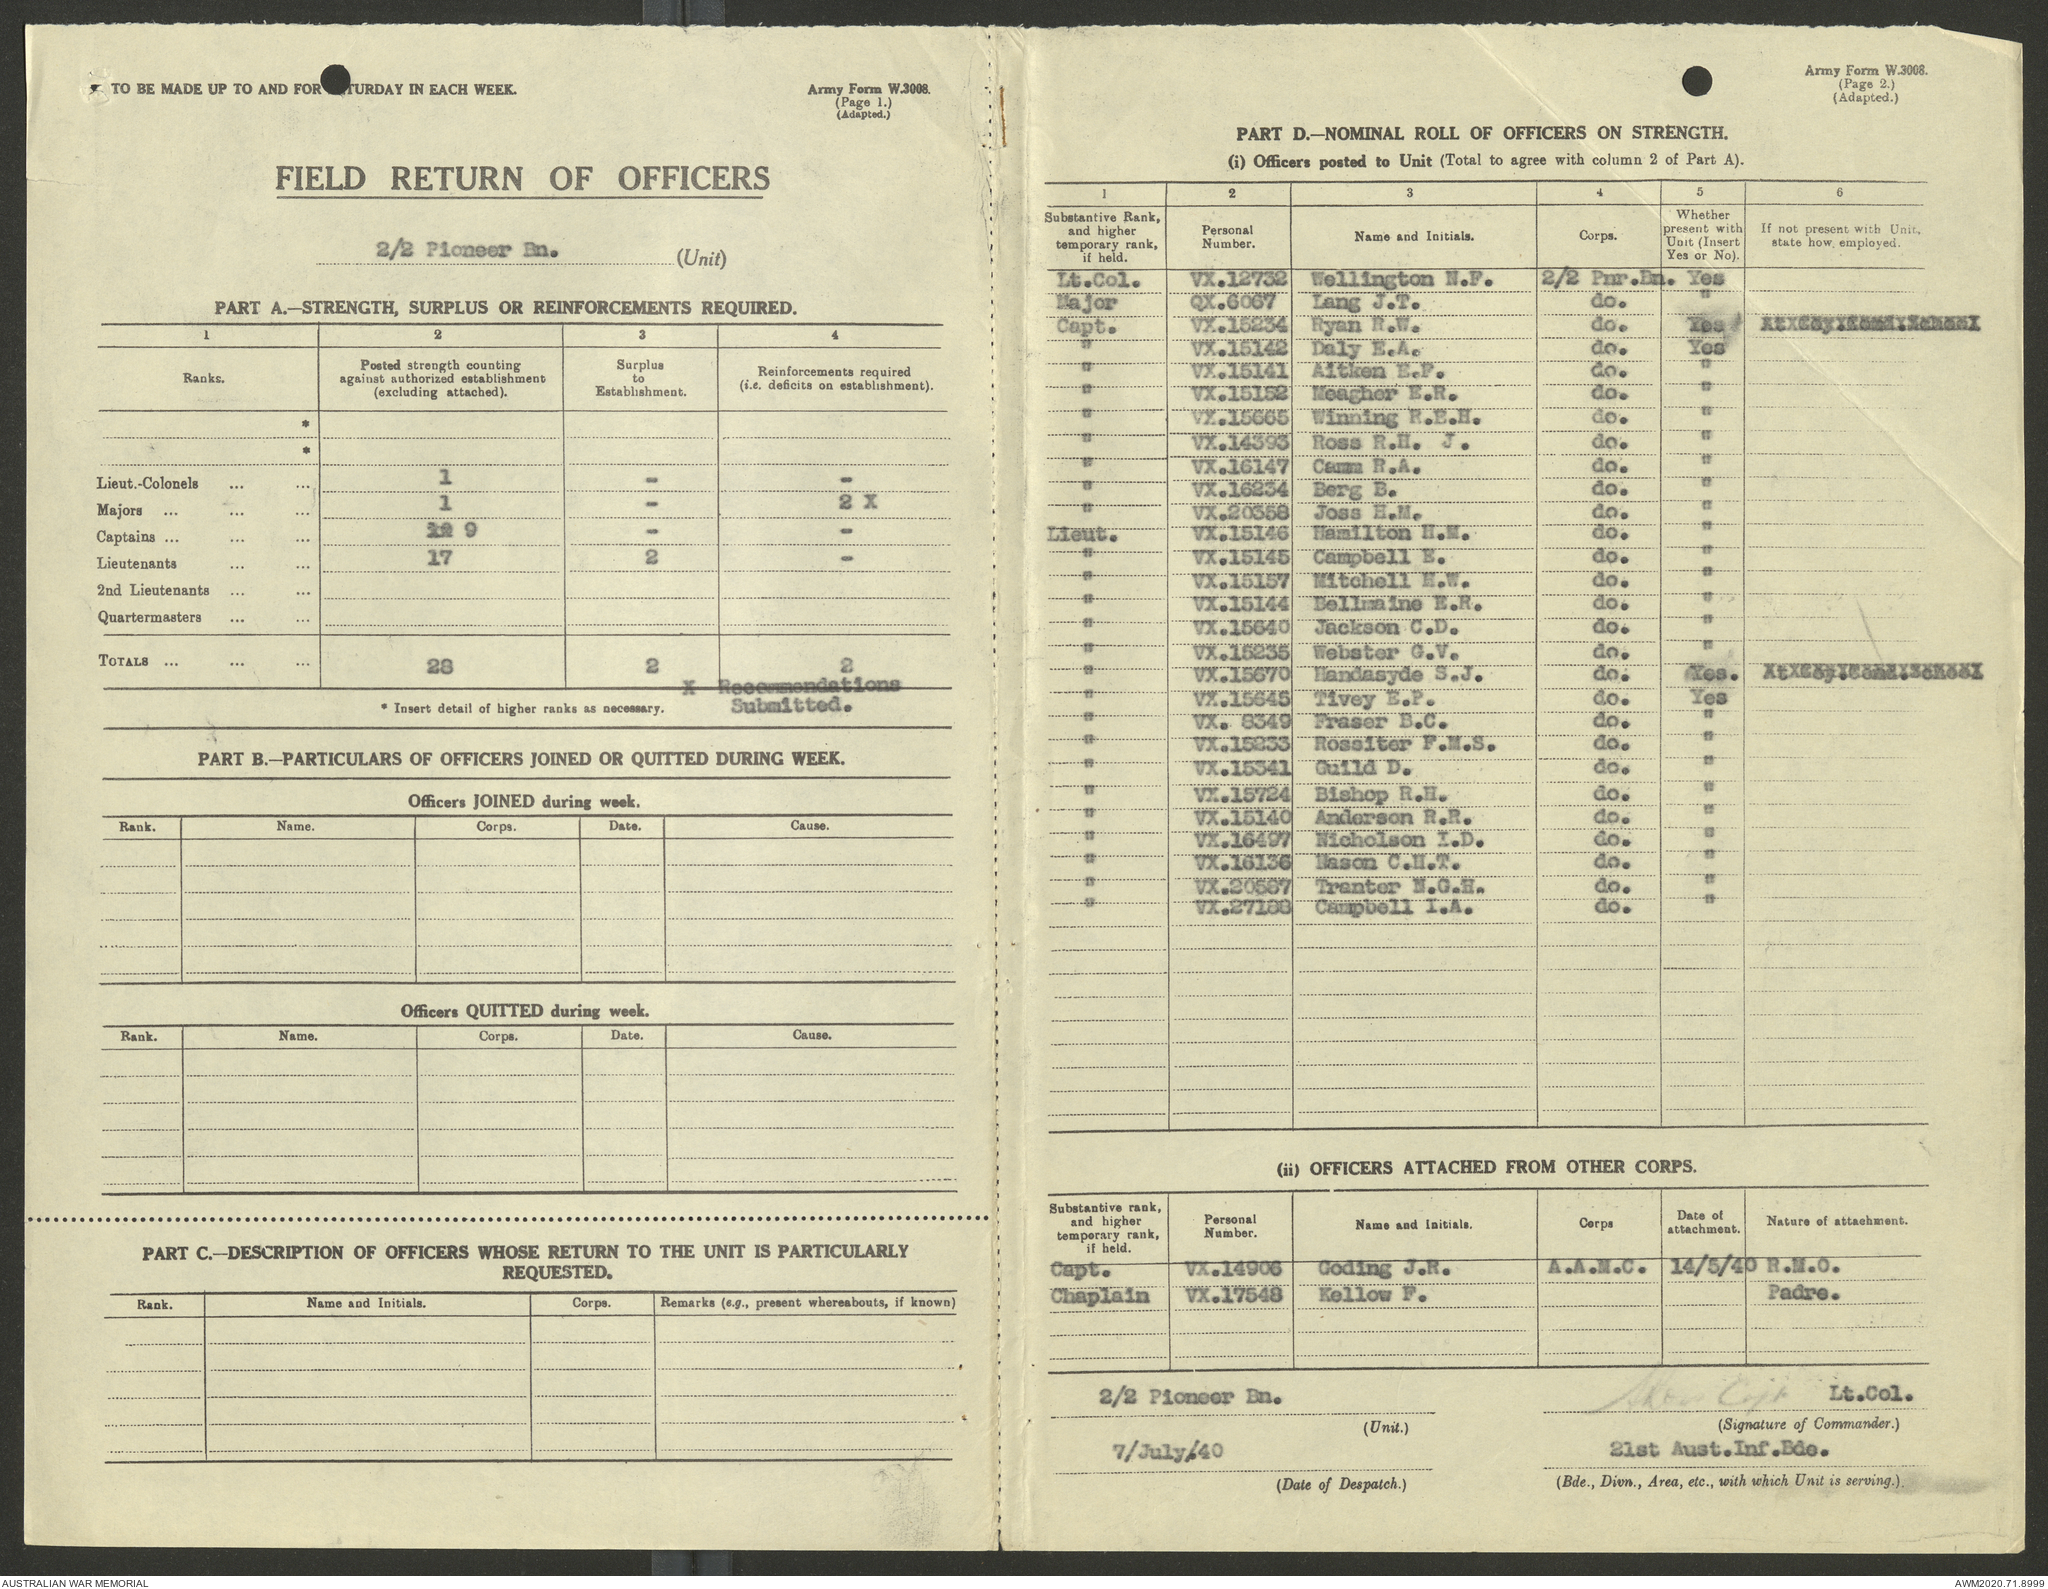 TO BE MADE UP TO AND FOR SATURDAY IN EACH WEEK.
Army Form W.3008.
(Page 1.)
(Adapted.)
FIELD RETURN OF OFFICERS
2/2 Pioneer Bn. (Unit)
PART A.—STRENGTH, SURPLUS OR REINFORCEMENTS REQUIRED.
1 2 3 4
Ranks. Posted strength counting against authorized establishment (excluding attached). Surplus to Establishment. Reinforcements required (i.e. deficits on establishment).
*
*
Lieut.-Colonels ... ... 1 - -
Majors ... ... ... 1 - 2 X
Captains ... ... ... 9 - -
Lieutenants ... ... 17 2 -
2nd Lieutenants ... ...
Quartermasters ... ...
TOTALS ... ... ... 28 2 2
X Recommendations
* Insert detail of higher ranks as necessary. Submitted.
PART B.—PARTICULARS OF OFFICERS JOINED OR QUITTED DURING WEEK.
Officers JOINED during week.
Rank. Name. Corps. Date. Cause.
Officers QUITTED during week.
Rank. Name. Corps. Date. Cause.
PART C.—DESCRIPTION OF OFFICERS WHOSE RETURN TO THE UNIT IS PARTICULARLY
REQUESTED.
Rank. Name and Initials. Corps. Remarks (e.g., present whereabouts, if known)
Army Form W.3008.
(Page 2.)
(Adapted.)
PART D.—NOMINAL ROLL OF OFFICERS ON STRENGTH.
(i) Officers posted to Unit (Total to agree with column 2 of Part A).
1 2 3 4 5 6
Substantive Rank, and higher temporary rank, if held. Personal Number. Name and Initials. Corps. Whether present with Unit (Insert Yes or No). If not present with Unit, state how employed.
Lt.Col. VX.12732 Wellington N.F. 2/2 Pnr.Bn. Yes
Major QX.6067 Lang J.T. do. "
Capt. VX.15234 Ryan R.W. do. Yes
" VX.15142 Daly E.A. do. Yes
" VX.15141 Aitken E.F. do. "
" VX.15152 Meagher E.R. do. "
" VX.15665 Winning R.E.H. do. "
" VX.14393 Ross R.H. J. do. "
" VX.16147 Camm R.A. do. "
" VX.16234 Berg B. do. "
" VX.20358 Joss H.M. do. "
Lieut. VX.15146 Hamilton H.M. do. "
" VX.15145 Campbell E. do. "
" VX.15157 Mitchell H.W. do. "
" VX.15144 Bellmaine E.R. do. "
" VX.15640 Jackson C.D. do. "
" VX.15235 Webster G.V. do. "
" VX.15670 Handasyde S.J. do. Yes.
" VX.15645 Tivey E.P. do. Yes
" VX. 8349 Fraser B.C. do. "
" VX.15233 Rossiter F.M.S. do. "
" VX.15341 Guild D. do. "
" VX.15724 Bishop R.H. do. "
" VX.15140 Anderson R.R. do. "
" VX.16497 Nicholson I.D. do. "
" VX.16136 Mason C.H.T. do. "
" VX.20587 Tranter N.G.H. do. "
" VX.27188 Campbell I.A. do. "
(ii) OFFICERS ATTACHED FROM OTHER CORPS.
Substantive rank, and higher temporary rank, if held. Personal Number. Name and Initials. Corps Date of attachment. Nature of attachment.
Capt. VX.14906 Goding J.R. A.A.M.C. 14/5/40 R.M.O.
Chaplain VX.17548 Kellow F. Padre.
2/2 Pioneer Bn. Lt.Col.
(Unit.) (Signature of Commander.)
7/July/40 21st Aust.Inf.Bde.
(Date of Despatch.) (Bde., Divn., Area, etc., with which Unit is serving.)
AUSTRALIAN WAR MEMORIAL AWM2020.71.8999